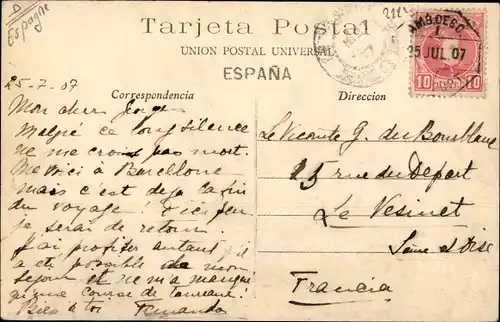 Espagne
Tarjeta Postal
UNION POSTAL UNIVERSAL
ESPAÑA
AMB. DESC.
25 JUL. 07
10 10
Correspondencia
Direccion
25-7-07
Mon cher
Malgré ce long silence
ne me crois pas mort.
Me voici à Barcelone
mais c'est deja la fin
du voyage! D'ici peu
je serai de retour.
J'ai profiter autant qu'il
a été possible de mon
sejour et ne m'a manqué
qu'une course de taureaux!
Bien à toi Fernando
Le Vicomte G. du
15 rue du Départ
Le Vesinet
Seine et Oise
Francia